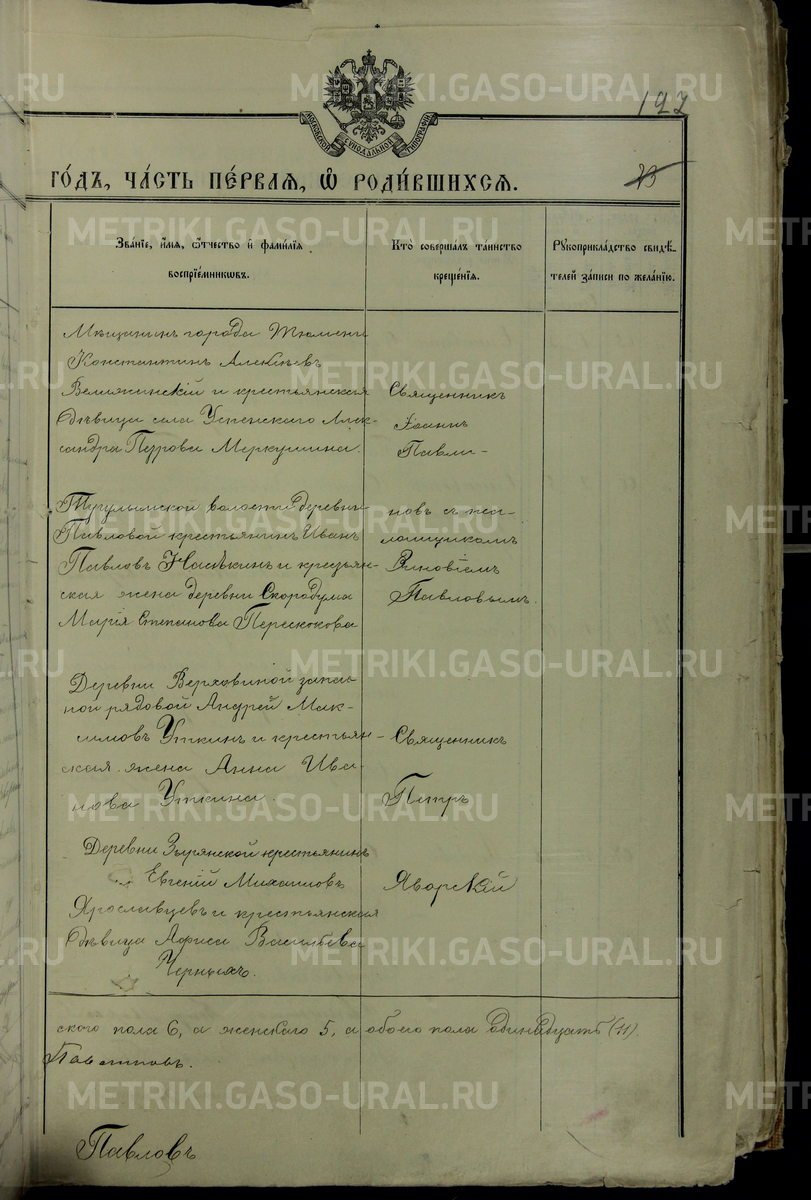 197
23
МОСКОВСКОЙ СѴНОДАЛЬНОЙ ТИПОГРАФІИ
ГО́ДЪ, ЧА́СТЬ ПЕ́РВАЯ, Ѡ҆ РОДИ́ВШИХСЯ.
Зва́нїе, и҆́мя, ѻ҆́тчество и҆ фами́лїя
воспрїе́мникѡвъ.
Кто̀ соверша́лъ та́инство
креще́нїя.
Рꙋкоприкла́дство свидѣ́-
телей за́писи по жела́нїю.
Мѣщанинъ города Тюмени
Константинъ Алексѣевъ
Вележинскій и крестьянская
дѣвица села Успенскаго Алек-
сандра Петрова Меркушина.
Священникъ
Іоаннъ
Павли-
Тугулымской волости деревни
Павловой крестьянинъ Иванъ
Павловъ и крестьян-
ская жена деревни Скородума
Марія Степанова Перескокова
новъ съ пса-
ломщикомъ
Зиновіемъ
Павловымъ.
Деревни Верховиной запас-
ной рядовой Андрей Мак-
симовъ Уткинъ и крестьян-
ская жена Анна Ива-
нова Уткина.
Священникъ
Петръ
Деревни Зырянской крестьянинъ
Евгеній Михаиловъ
Ярославцевъ и крестьянская
дѣвица Афиса Васильева
Черныхъ.
Яворскій
ского пола 6, а женскаго 5, а обоего пола одинадцать (11).
Павлиновъ.
Павловъ
METRIKI.GASO-URAL.RU